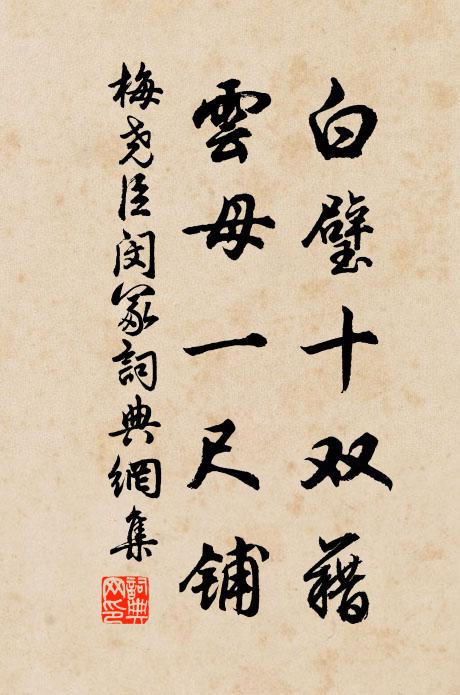 白璧十双藉
雲母一尺铺
梅尧臣闵冢詞典網集
詞典网印